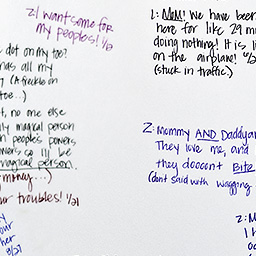 Z: I want some for
my peoples! 1/2
dot on my toe?
has all my
(A freckle on
toe...)
t, no one else
ly magical person
n people's powers
powers so I'll be
magical person.
money...)
ur troubles! 1/21
your
her
8/27
1: MOM! We have been
here for like 29 min
doing nothing! It is li
on the airplane!
(stuck in traffic.)
Z: Mommy AND Daddy ar
They love me, and
they doooont Bite
(dont said with wagging
2: M
I h